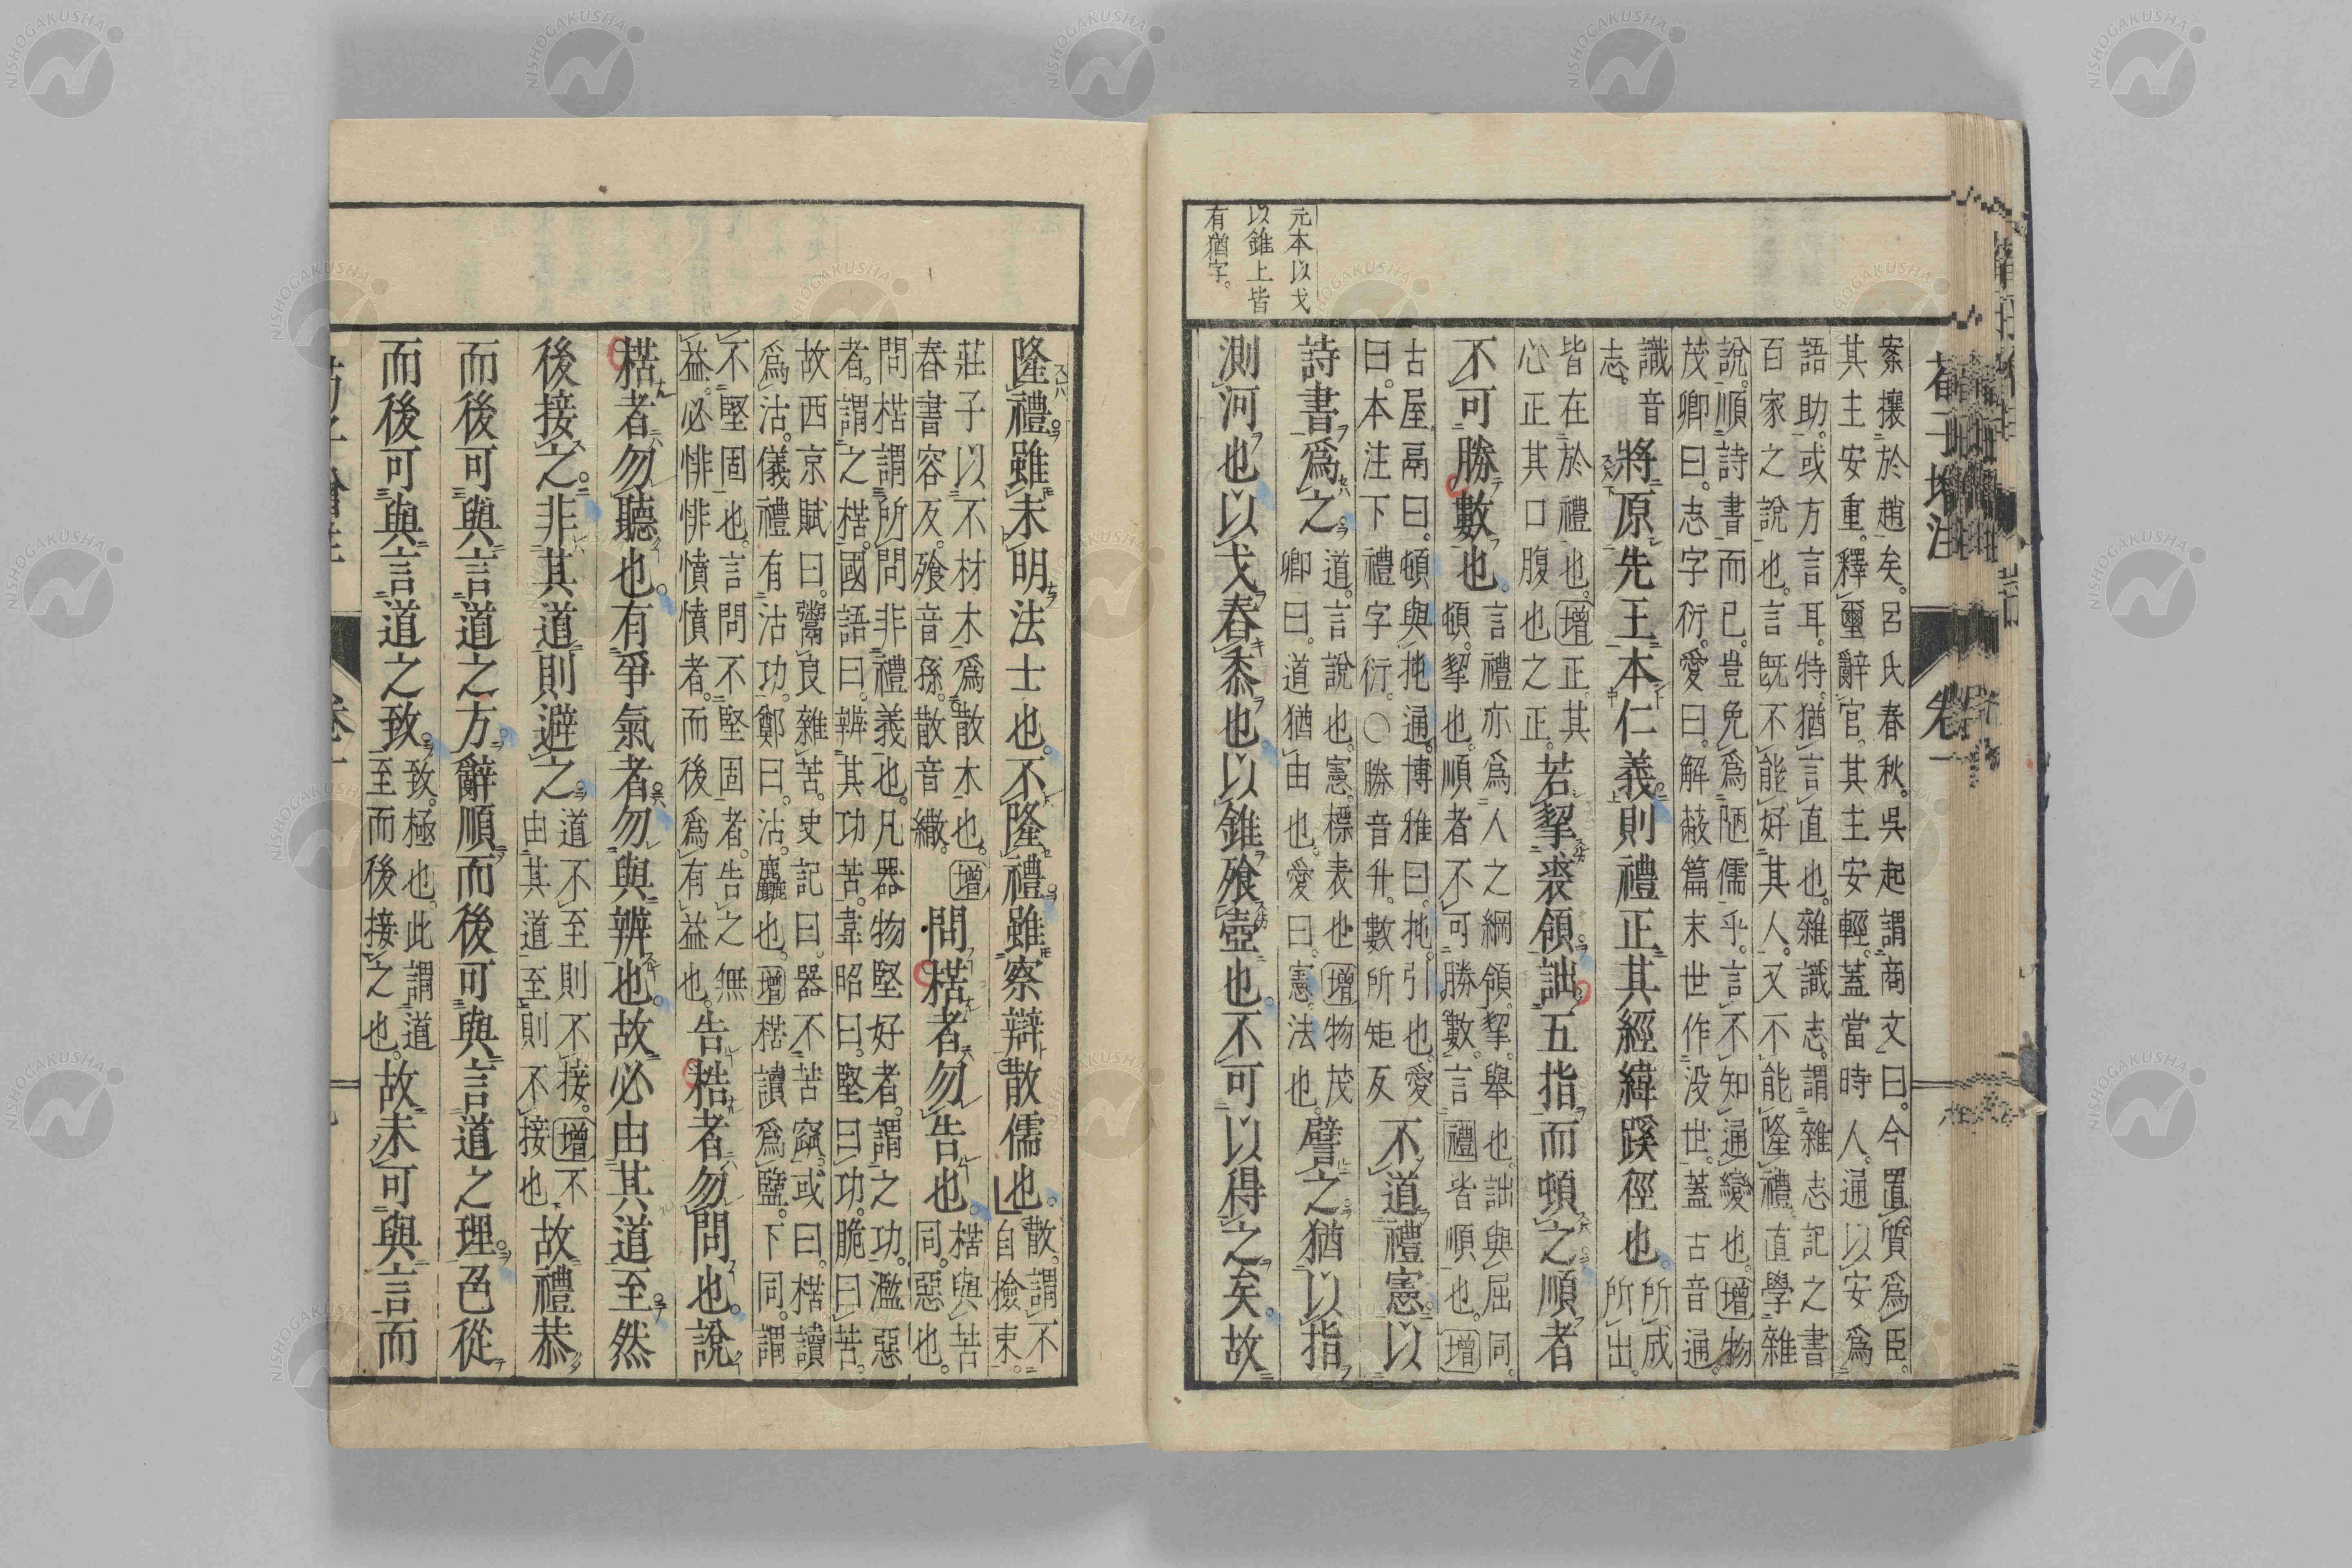 荀子增注 卷一
案攘於趙矣。呂氏春秋。吳起謂商文曰。今置質爲臣。
其主安重。釋璽辭官。其主安輕。蓋當時人。通以安爲
語助。或方言耳。特猶言直也。雜識志。謂雜志記之書
百家之說也。言既不能好其人。又不能隆禮。直學雜
說。順詩書而已。豈免爲陋儒乎。言不知通變也。增物
茂卿曰。志字衍。愛曰。解蔽篇末世作没世。蓋古音通
識音
志。
將原先王本仁義則禮正其經緯蹊徑也。
所成
所出。
皆在於禮也。增正。其
心正其口腹也之正。
若挈裘領詘五指而頓之順者
不可勝數也。
言禮亦爲人之綱領。挈。舉也。詘與屈同。
頓。挈也。順者不可勝數。言禮皆順也。增
古屋鬲曰。頓與扽通。博雅曰。扽。引也。愛
曰。本注下禮字衍。○勝音升。數所矩反
不道禮憲以
詩書爲之
道。言說也。憲。標表也。增物茂
卿曰。道猶由也。愛曰。憲。法也。
譬之猶以指
測河也以戈舂黍也以錐飡壺也。不可以得之矣。故
元本以戈
以錐上皆
有猶字。
隆禮。雖未明法士也。不隆禮雖察辯散儒也。
散。謂不
自檢束。
莊子以不材木爲散木也。增
春書容反。飡音孫。散音繖。
問楛者勿告也。
楛與苦
同。惡也。
問楛謂所問非禮義也。凡器物堅好者。謂之功。濫惡
者。謂之楛。國語曰。辨其功苦。韋昭曰。堅曰功。脆曰苦。
故西京賦曰。鬻良雜苦。史記曰。器不苦窳。或曰。楛讀
爲沽。儀禮有沽功。鄭曰。沽。麤也。增楛讀爲盬。下同。謂
不堅固也。言問不堅固者。告之無
益。必悱悱憤憤者。而後爲有益也。
告楛者勿問也。說
楛者勿聽也。有爭氣者勿與辨也。故必由其道至然
後接之。非其道則避之
道不至則不接。增不
由其道至則不接也
故禮恭
而後可與言道之方。辭順而後可與言道之理。色從
而後可與言道之致。
致。極也。此謂道
至而後接之也。
故未可與言而